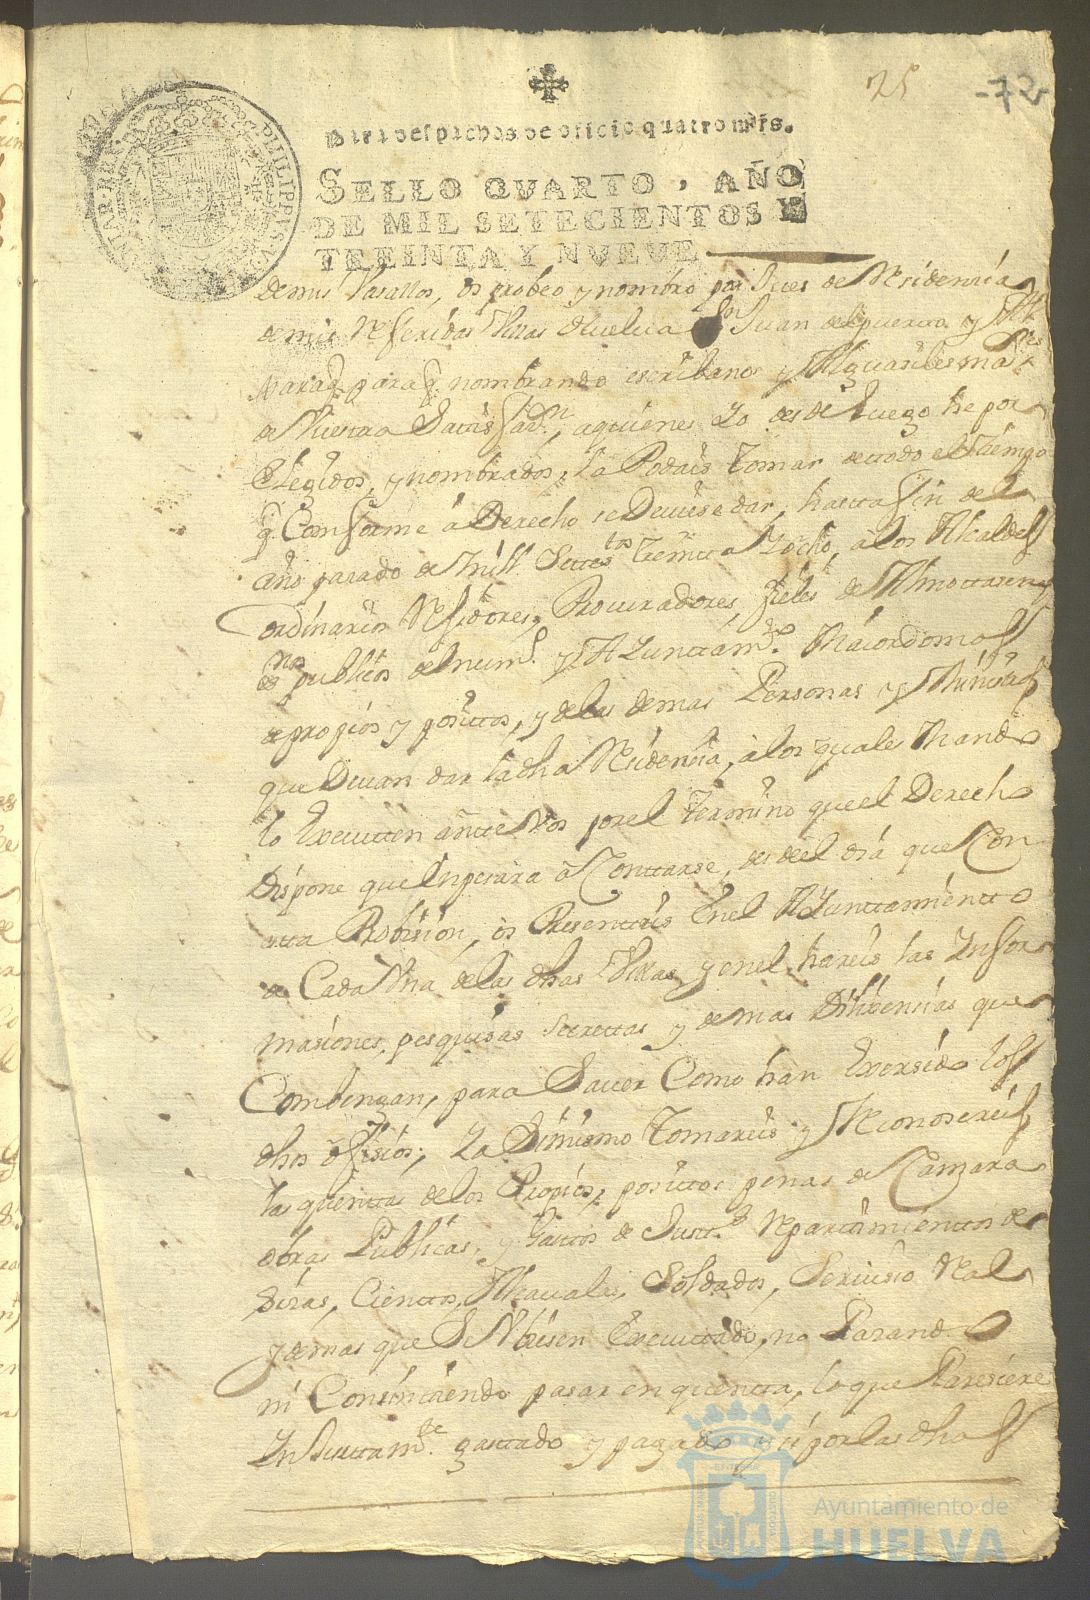 25 -72
Para despachos de oficio quatro mrs.
SELLO QVARTO, AÑO
DE MIL SETECIENTOS Y
TREINTA Y NVEVE
PHILIPPVS V
de mis Vasallos, os probeo y nombro por Jues de Residencia
de mis Referidas Villas de Huelva Sn Juan del puerto y
para q nombrando escribanos y Alguasiles ma
de Vuestra Satisfazn, a quienes Yo desde luego he por
Elegidos, y nombrados, la Podais Tomar de todo el Tiempo
q Conforme â Derecho se Deviese dar, hasta fin del
año pasado de Mill Settestos Treinta Y ocho, â los Alcaldes
ordinarios Residores, Procuradores, fieles de Almottasen
esnos publicos del numo. y Ayunttamto. Maiordomos
de propios y positos, y de las demas Personas y Minist
que Devan dar la dha Residencia, â los quales Mando
lo Executten antte Vos por el Termino que el Derecho
Dispone que Enpesara â Conttarse, desde el dia que Con
esta Probision, os Presentteis En el Ayunttamientto
de Cada Vna de las dhas Villas, y en el hareis las Ynfor
masiones, pesquisas Secrettas y demas Dilixencias que
Combengan, para Saver Como han Exersido los
dhos ofisios; Ya Simismo Tomareis y Reconosereis
las quenttas de los Propios, posittos penas de Camara
obras Publicas, y Gastos de Justa. Repartimienttos de
Sisas, Cienttos, Alcavalas, Soldados, Serviisio Real
y demas que Se Vbiesen Executtado, no Pasando
ni Consintiendo pasar en quentta, lo que Paresiere
Ynjustamte. gastado y pagado y si por las dhas
Ayuntamiento de
HUELVA